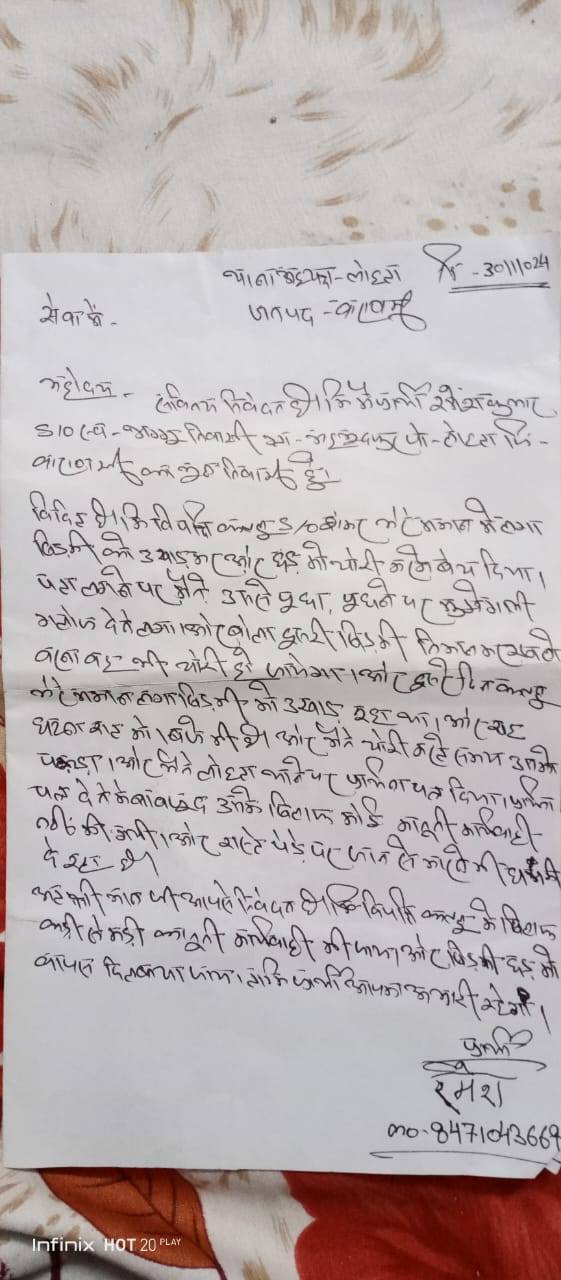 थानाध्यक्ष-लोहता दि-30/11/024
सेवा में-
जनपद-वाराणसी
महोदय- सविनय निवेदन है कि मैं प्रार्थी रमेश कुमार
S/O स्व- निवासी ग्रा- पो-लोहता जि-
वाराणसी का मूल निवासी हूँ।
विदित है कि विपक्षी कल्लू S/O मेरे मकान में लगा
खिड़की को उखाड़कर और छड़ को चोरी करके बेच दिया।
पता लगने पर मैंने उससे पूछा, पूछने पर मुझे गाली
गलौज देने लगा। और बोला दूसरी खिड़की निकालकर रखले
वरना वह भी चोरी हो जायेगा। और दूसरे दिन कल्लू
मेरे मकान लगा खिड़की को उखाड़ रहा था। और यह
घटना की है और मैंने चोरी करते समय उसको
पकड़ा। और मैंने लोहता थाने पर प्रार्थना पत्र दिया। प्रार्थना
पत्र देने के बावजूद उसके खिलाफ कोई कानूनी कार्यवाही
नहीं की गयी। और रास्ते पैड़े पर जान से मारने की धमकी
दे रहा है।
अतः श्रीमान जी आपसे निवेदन है कि विपक्षी कल्लू के खिलाफ
कड़ी से कड़ी कानूनी कार्यवाही की जाय और खिड़की छड़ को
वापस दिलवाया जाय। ताकि प्रार्थी आपका आभारी रहेगा।
प्रार्थी
रमेश
mo-8471043669
Infinix HOT 20 PLAY